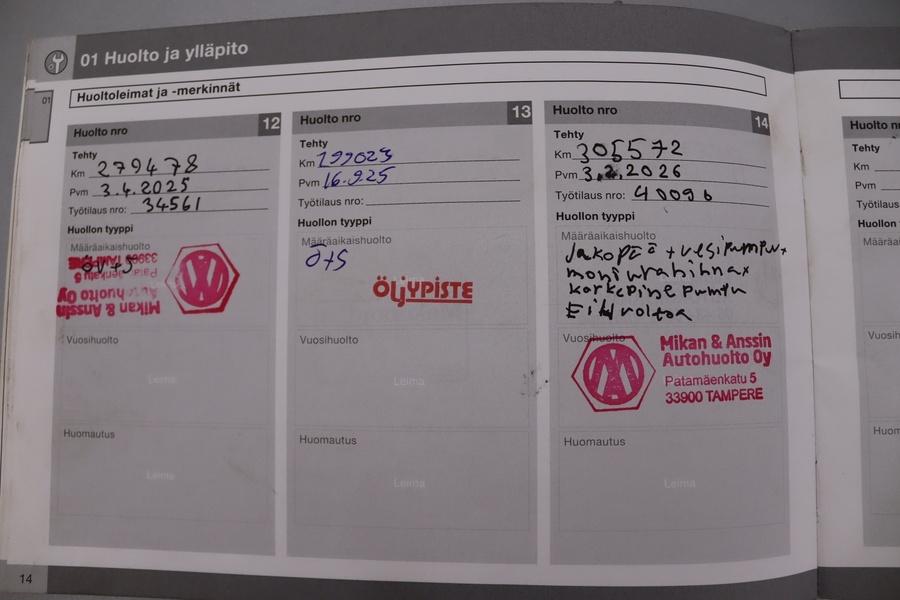 01 Huolto ja ylläpito
01
Huoltoleimat ja -merkinnät
Huolto nro 12
Tehty
Km 279478
Pvm 3.4.2025
Työtilaus nro: 34561
Huollon tyyppi
Määräaikaishuolto
Mikan & Anssin
Autohuolto Oy
Patamäenkatu 5
33900 TAMPERE
Vuosihuolto
Leima
Huomautus
Leima
Huolto nro 13
Tehty
Km 299023
Pvm 16.9.25
Työtilaus nro:
Huollon tyyppi
Määräaikaishuolto
Ö+S
ÖLJYPISTE
Vuosihuolto
Leima
Huomautus
Leima
Huolto nro 14
Tehty
Km 305572
Pvm 3.2.2026
Työtilaus nro: 40096
Huollon tyyppi
Määräaikaishuolto
Jakopää + vesipumppu+
moniurahihna+
korkepine pumpun
Vuosihuolto
Mikan & Anssin
Autohuolto Oy
Patamäenkatu 5
33900 TAMPERE
Huomautus
Leima
Huolto
Tehty
Km
Pvm
Huollon
14